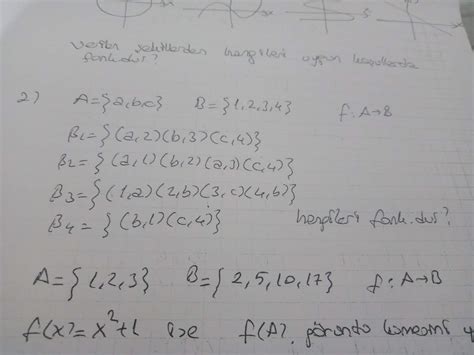 verilen şekillerden hangileri uygun koşullarda
fonk.dur?
2) A={a,b,c} B={1,2,3,4} f:A→B
β1={(a,2)(b,3)(c,4)}
β2={(a,1)(b,2)(a,3)(c,4)}
β3={(1,a)(2,b)(3,c)(4,b)}
β4={(b,1)(c,4)} hangileri fonk.dur?
A={1,2,3} B={2,5,10,17} f:A→B
f(x)=x²+1 ise f(A), görüntü kümesini